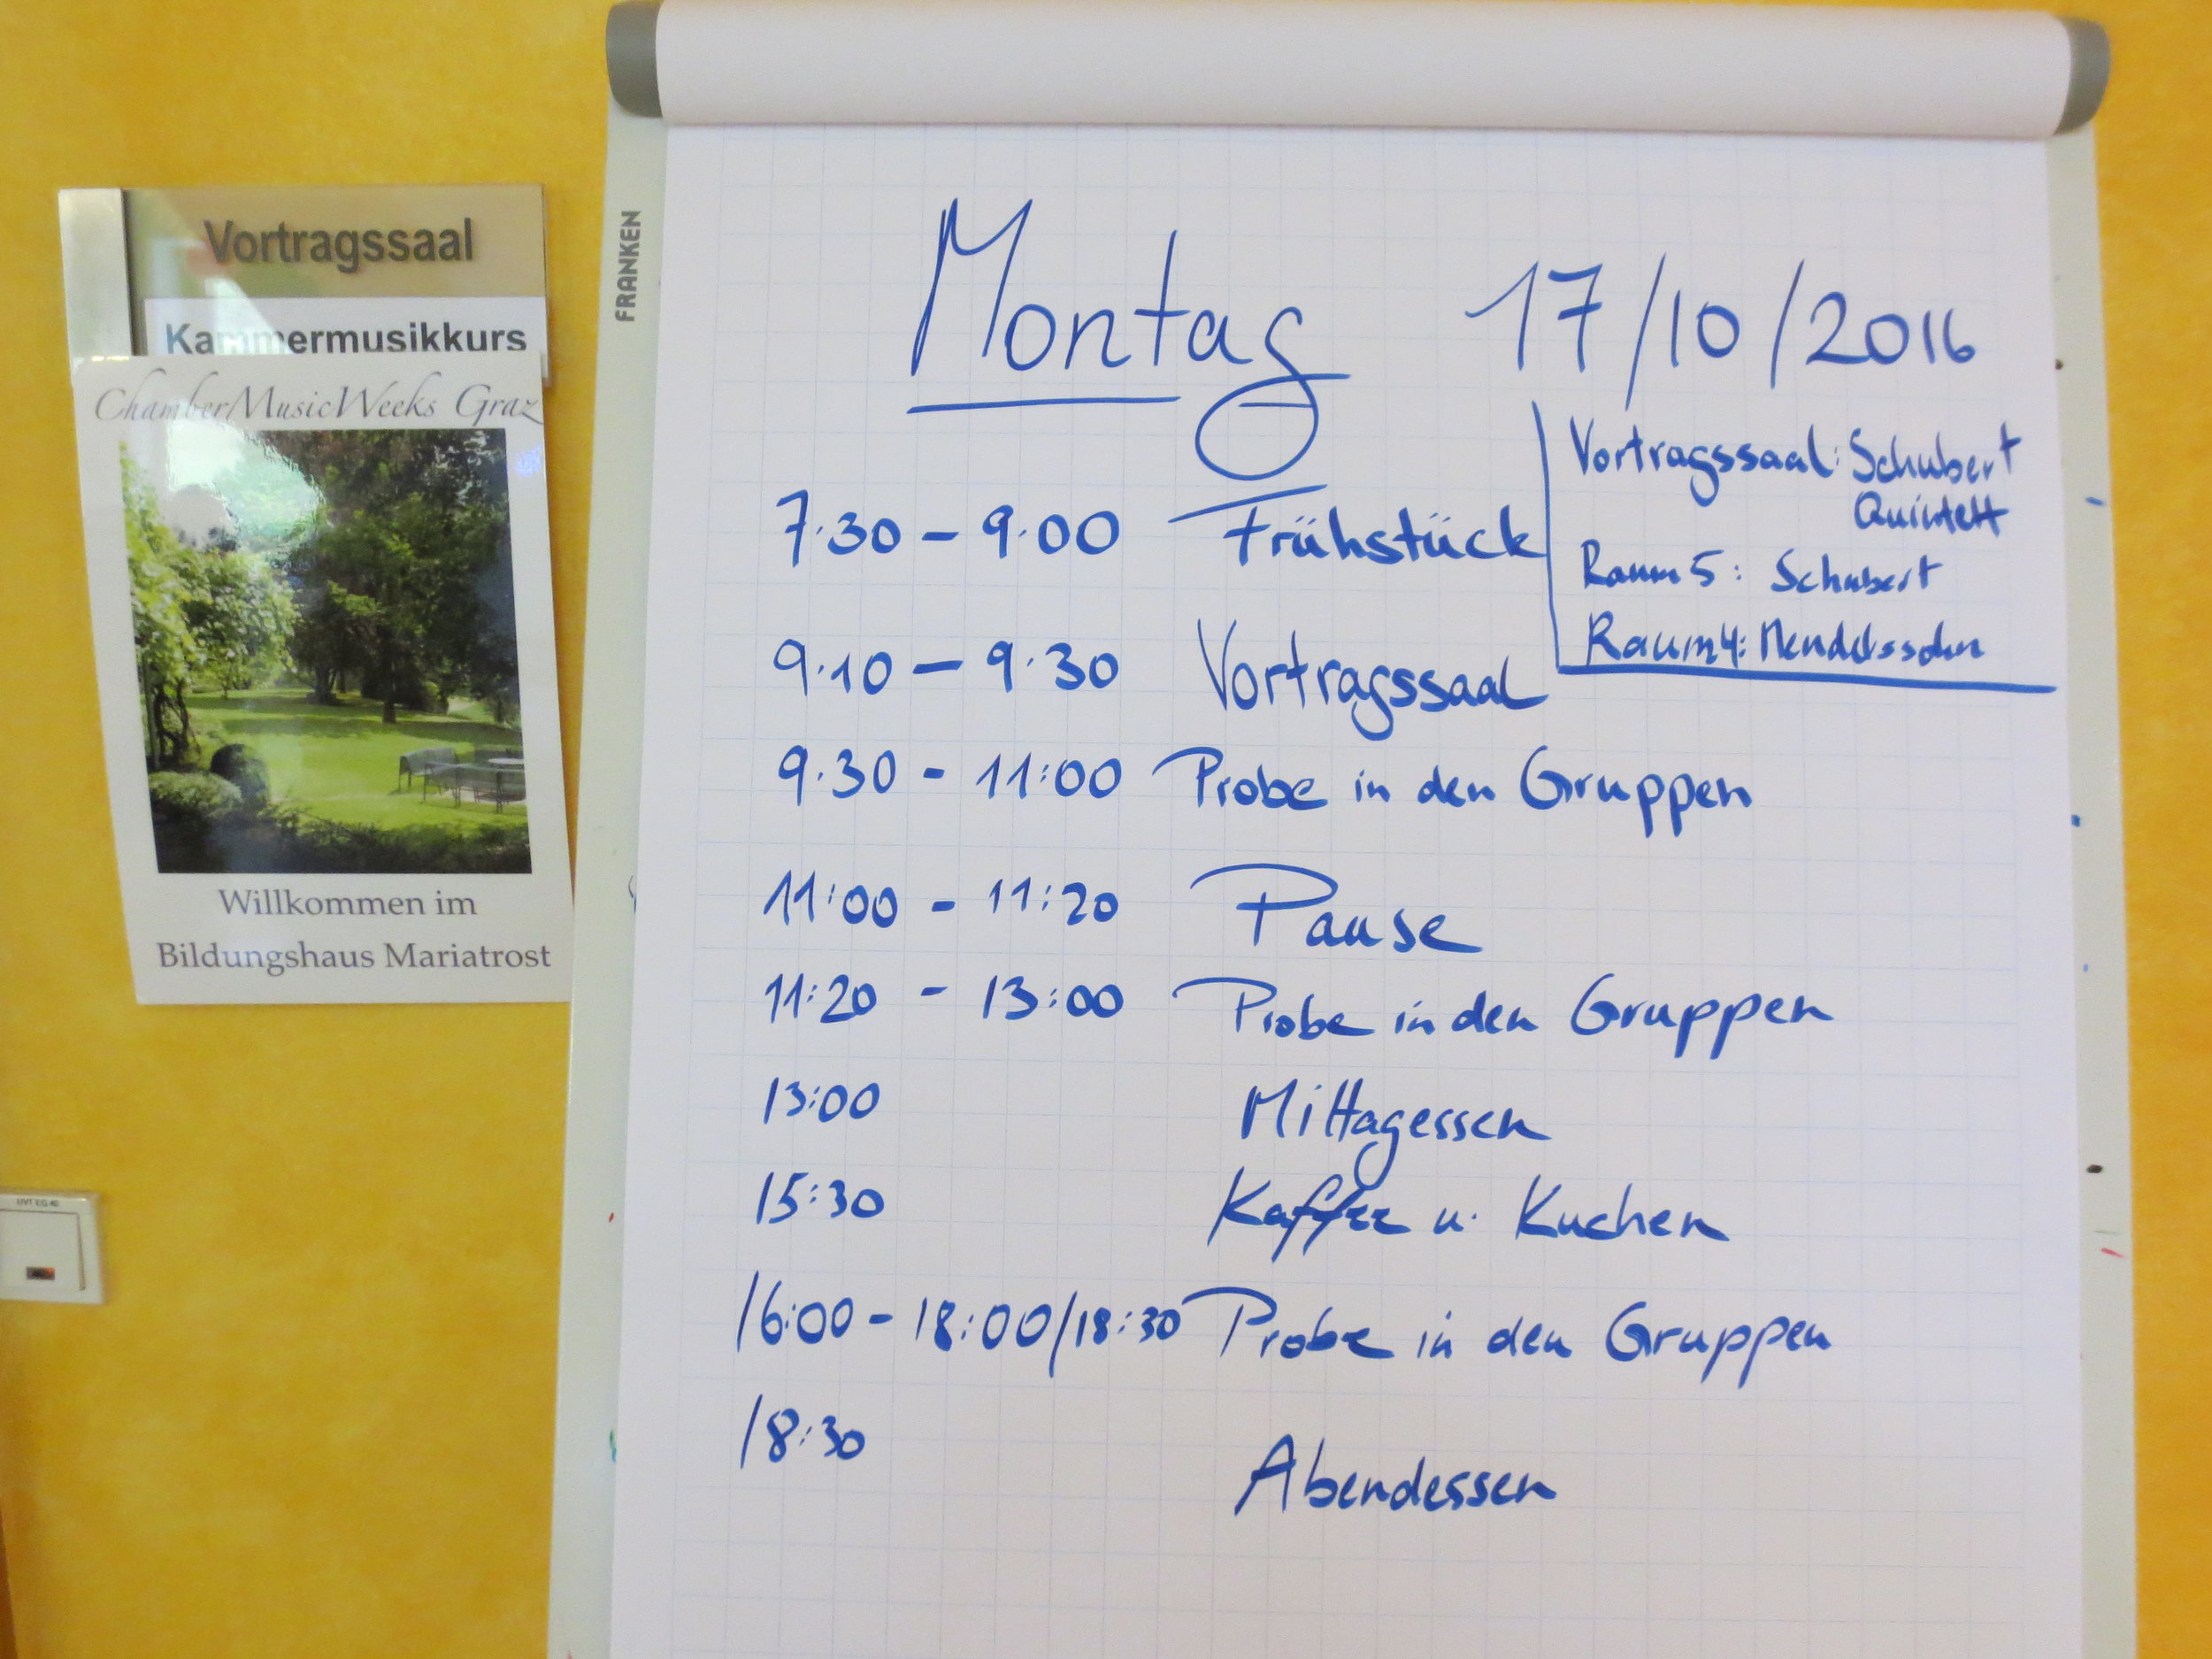 Vortragssaal
Kammermusikkurs
ChamberMusicWeeks Graz
Willkommen im
Bildungshaus Mariatrost
FRANKEN
Montag 17/10/2016
Vortragssaal: Schubert
Quintett
Raum 5: Schubert
Raum 4: Mendelssohn
7.30 - 9.00 Frühstück
9.10 - 9.30 Vortragssaal
9.30 - 11:00 Probe in den Gruppen
11:00 - 11:20 Pause
11:20 - 13:00 Probe in den Gruppen
13:00 Mittagessen
15:30 Kaffee u. Kuchen
16:00 - 18:00/18:30 Probe in den Gruppen
18:30 Abendessen